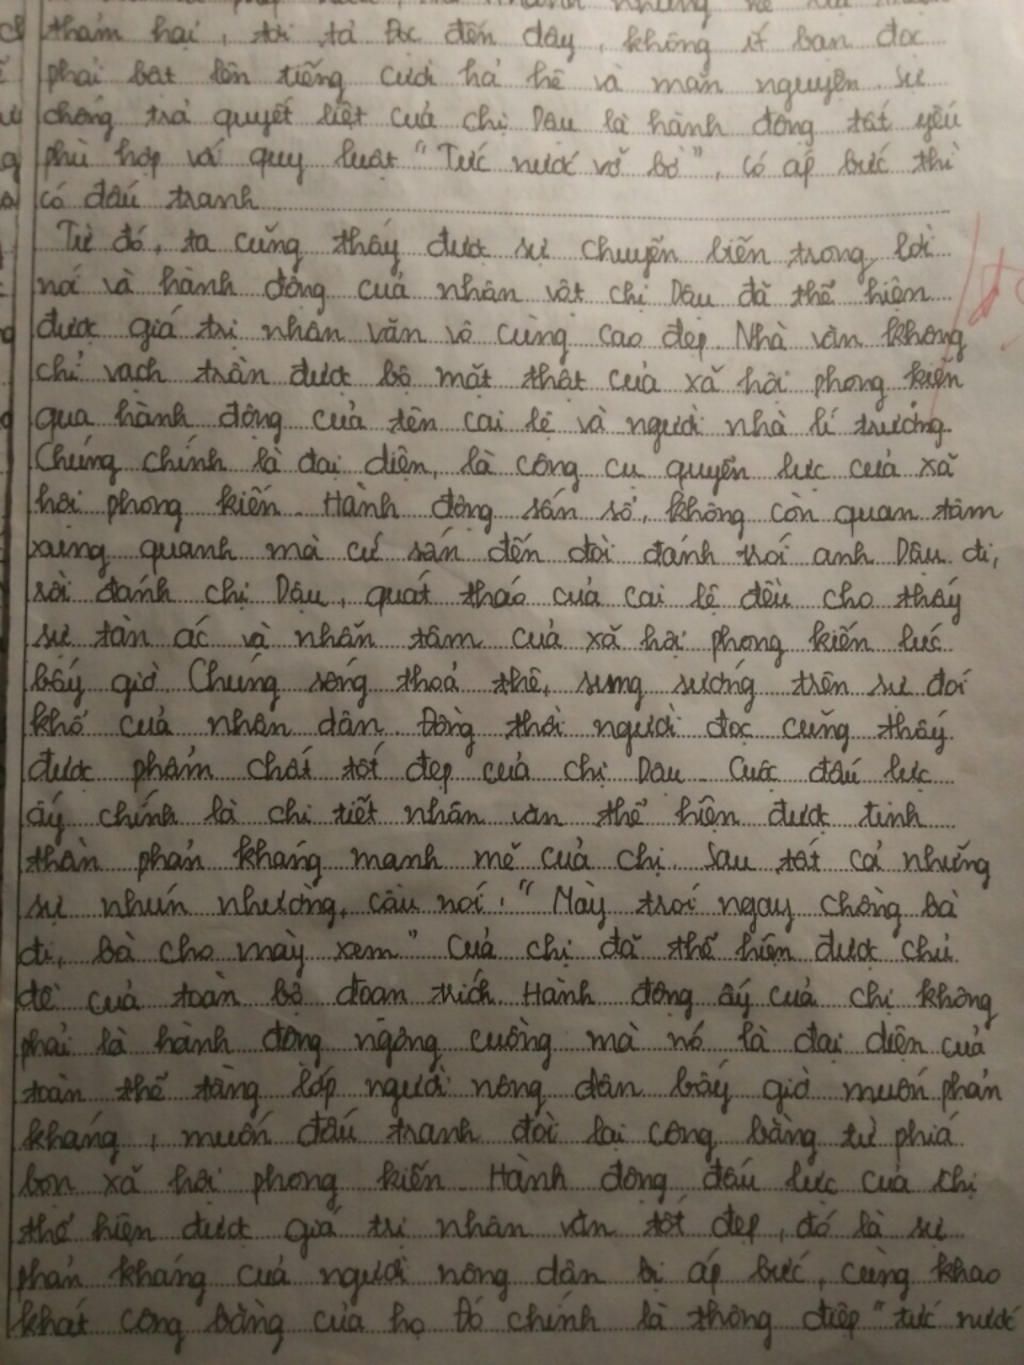 thảm hại, tới tả Đọc đến đây, không ít bạn đọc
phải bật lên tiếng cười hả hê và mãn nguyện. Sự
chống trả quyết liệt của chị Dậu là hành động tất yếu
phù hợp với quy luật "Tức nước vỡ bờ", có áp bức thì
có đấu tranh
Từ đó, ta cũng thấy được sự chuyển biến trong lời
nói và hành động của nhân vật chị Dậu đã thể hiện
được giá trị nhân văn vô cùng cao đẹp. Nhà văn không
chỉ vạch trần được bộ mặt thật của xã hội phong kiến
qua hành động của tên cai lệ và người nhà lí trưởng.
Chúng chính là đại diện, là công cụ quyền lực của xã
hội phong kiến. Hành động sấn sổ, không còn quan tâm
xưng quanh mà cứ sấn đến đòi đánh trói anh Dậu đi,
rồi đánh chị Dậu, quát tháo của cai lệ đều cho thấy
sự tàn ác và nhẫn tâm của xã hội phong kiến lúc
bấy giờ. Chúng sống thoả thê, sung sướng trên sự đói
khổ của nhân dân. Đồng thời người đọc cũng thấy
được phẩm chất tốt đẹp của chị Dậu. Cuộc đấu lực
ấy chính là chi tiết nhân văn thể hiện được tinh
thần phản kháng mạnh mẽ của chị. Sau tất cả những
sự nhún nhường, câu nói: "Mày trói ngay chồng bà
đi, bà cho mày xem" của chị đã thể hiện được chủ
đề của toàn bộ đoạn trích. Hành động ấy của chị không
phải là hành động ngông cuồng mà nó là đại diện của
toàn thể tầng lớp người nông dân bấy giờ muốn phản
kháng, muốn đấu tranh đòi lại công bằng từ phía
bọn xã hội phong kiến. Hành động đấu lực của chị
thể hiện được giá trị nhân văn tốt đẹp, đó là sự
phản kháng của người nông dân bị áp bức, cùng khao
khát công bằng của họ. Đó chính là thông điệp "tức nước